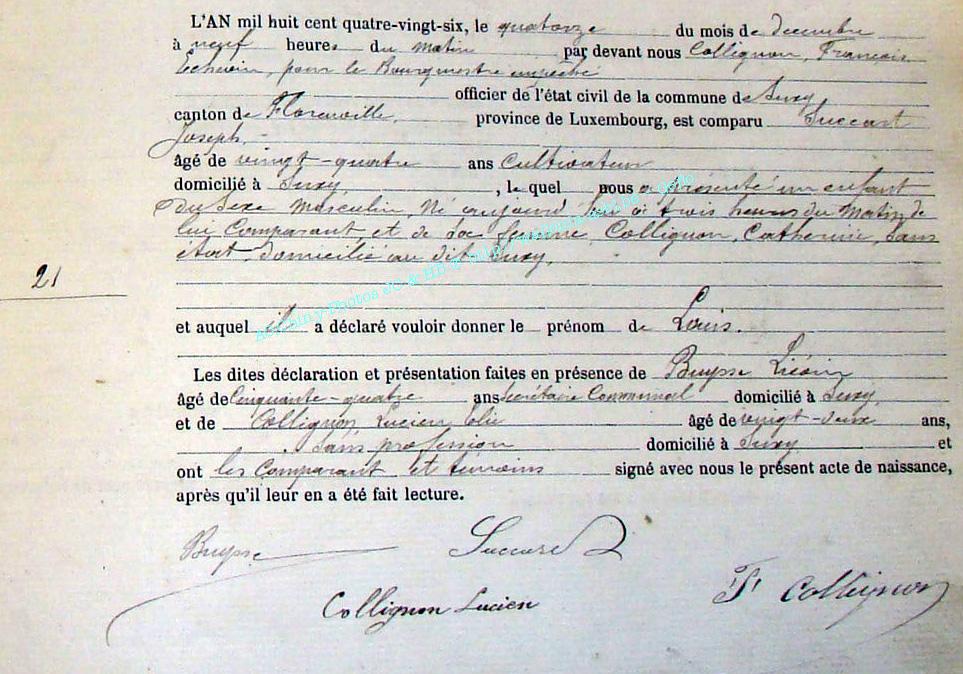 L'AN mil huit cent quatre-vingt-six, le quatorze du mois de decembre
à neuf heures du matin par devant nous Collignon, François
Echevin, pour le Bourgmestre empêché
officier de l'état civil de la commune de Suxy,
canton de Florenville, province de Luxembourg, est comparu Succart
Joseph,
âgé de vingt-quatre ans cultivateur
domicilié à Suxy, , lequel nous a présenté un enfant
du sexe masculin, Né aujourd'hui à trois heures du Matin de
lui Comparant et de sa femme, Collignon, Catherine, Sans
état, domicilié au dit Suxy,
21
et auquel il a déclaré vouloir donner le prénom de Louis.
Les dites déclaration et présentation faites en présence de Buysse
âgé de Cinquante-quatre ans Secrétaire Communal domicilié à Suxy,
et de Collignon, Lucien Elie âgé de vingt-deux ans,
Sans profession domicilié à Suxy et
ont les Comparant et témoins signé avec nous le présent acte de naissance,
après qu'il leur en a été fait lecture.
Buysse
Collignon Lucien
F Collignon